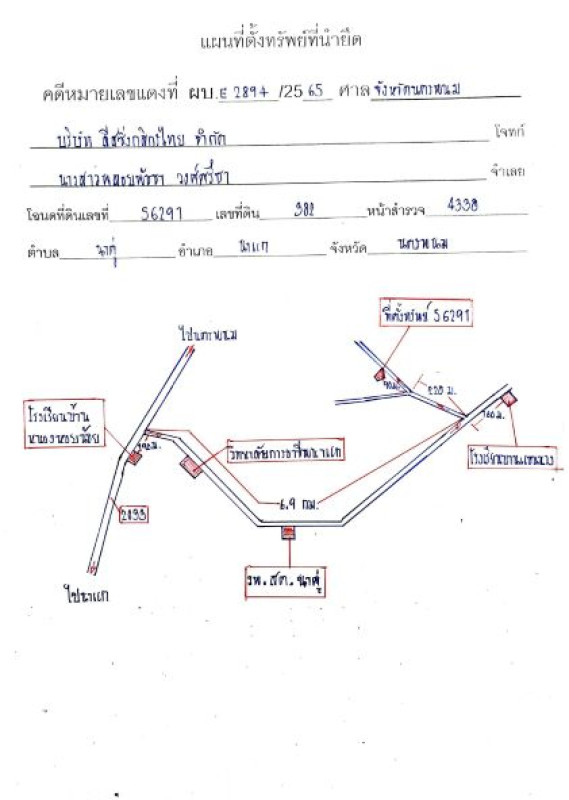 แผนที่ตั้งทรัพย์ที่นำยึด
คดีหมายเลขแดงที่ ผบ.E 2894 /25 65 ศาล จังหวัดนครพนม
บริษัท ลีสซิ่งกสิกรไทย จำกัด โจทก์
นางสาว วงศ์ศรีชา จำเลย
โฉนดที่ดินเลขที่ 56291 เลขที่ดิน 382 หน้าสำรวจ 4338
ตำบล นาคู่ อำเภอ นาแก จังหวัด นครพนม
ที่ตั้งทรัพย์ 56291
ไปนครพนม
220 ม.
โรงเรียนบ้าน
160 ม.
วิทยาลัยการอาชีพนาแก
6.9 กม.
2033
รพ.สต. นาคู่
ไปนาแก